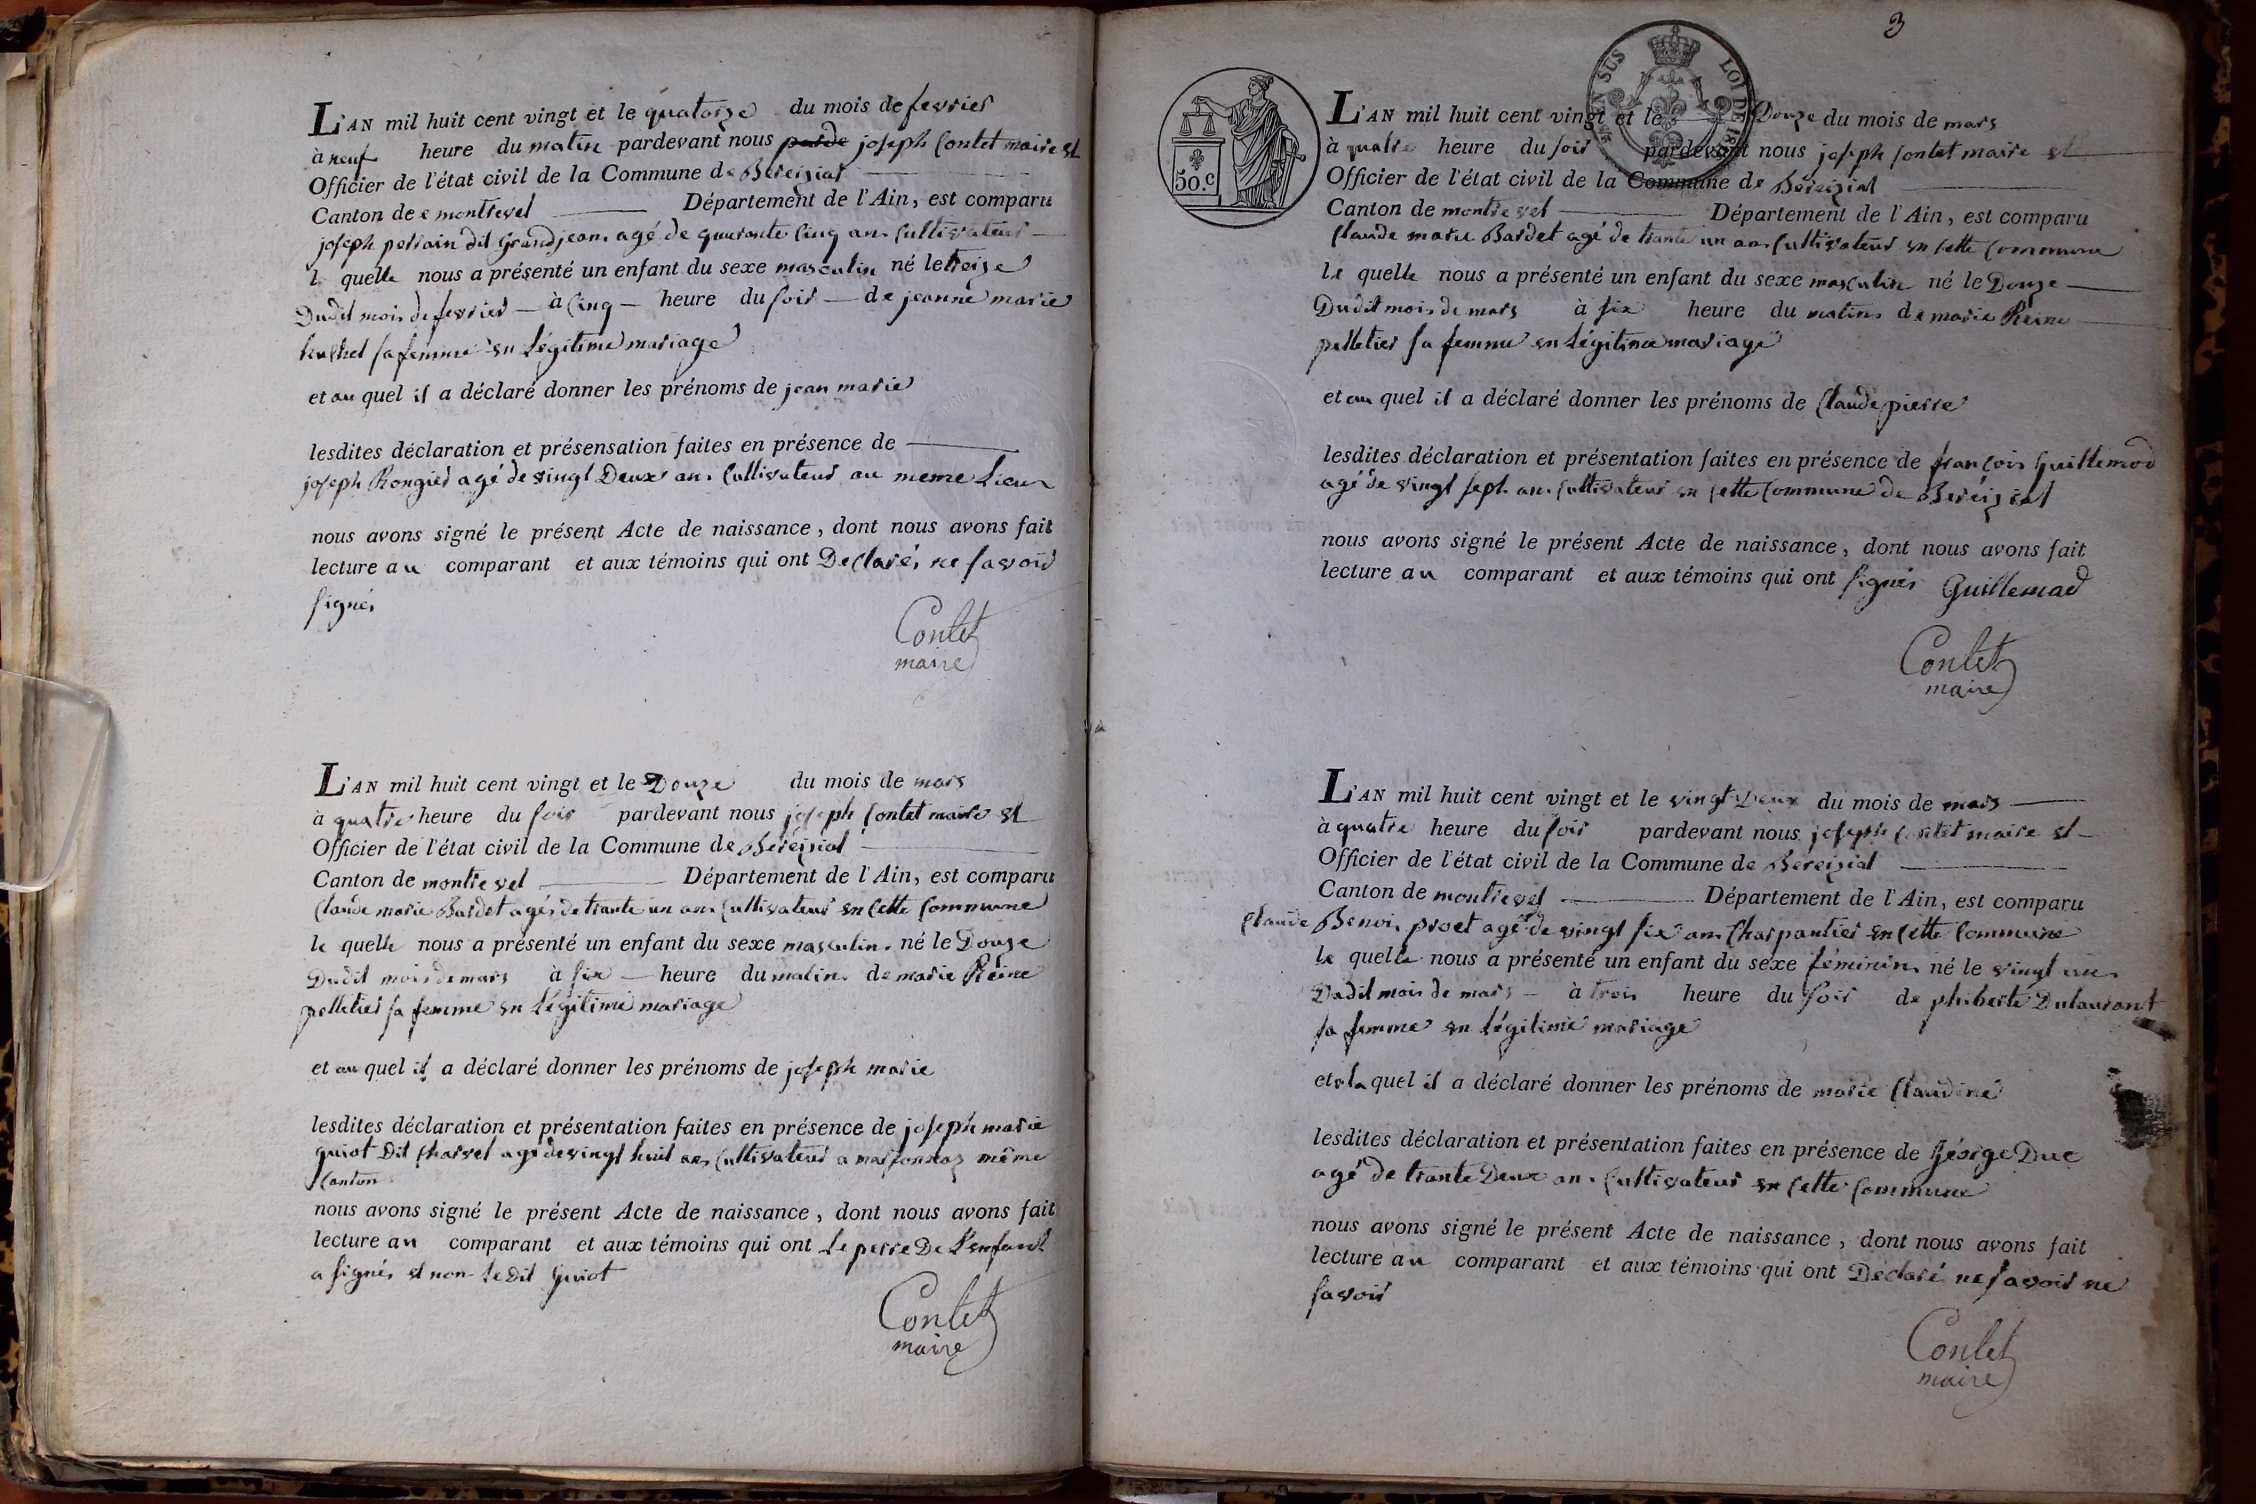 L'AN mil huit cent vingt et le quatorze du mois de fevrier
à neuf heure du matin pardevant nous joseph Contet maire et
Officier de l'état civil de la Commune de Béréiziat
Canton de montrevel Département de l'Ain, est comparu
joseph perrain dit Grandjean agé de quarante Cinq ans Cultivateur
le quelle nous a présenté un enfant du sexe masculin né le treize
Dudit mois de fevrier à Cinq heure du soir de jeanne marie
sa femme en Légitime mariage
et au quel il a déclaré donner les prénoms de jean marie
lesdites déclaration et présensation faites en présence de
joseph Rongier agé de vingt Deux ans Cultivateur au meme Lieux
nous avons signé le présent Acte de naissance, dont nous avons fait
lecture au comparant et aux témoins qui ont Declarés ne savoir
signés
Contet
maire
L'AN mil huit cent vingt et le Douze du mois de mars
à quatre heure du soir pardevant nous joseph Contet maire et
Officier de l'état civil de la Commune de Béréiziat
Canton de montrevel Département de l'Ain, est comparu
Claude marie Bardet agés de trante un ans Cultivateur en Cette Commune
le quelle nous a présenté un enfant du sexe masculin né le Douze
Dudit mois de mars à six heure du matin de marie Reine
pelletier sa femme en Légitime mariage
et au quel il a déclaré donner les prénoms de joseph marie
lesdites déclaration et présentation faites en présence de joseph marie
guiot Dit Charvet agé de vingt huit ans Cultivateur a marsonnas même
Canton
nous avons signé le présent Acte de naissance, dont nous avons fait
lecture au comparant et aux témoins qui ont Le perre De L'enfant
a signés et non Le dit Guiot
Contet
maire
3
50.c
EN SUS LOI DE 18
L'AN mil huit cent vingt et le Douze du mois de mars
à quatre heure du soir pardevant nous joseph Contet maire et
Officier de l'état civil de la Commune de Béréiziat
Canton de montrevel Département de l'Ain, est comparu
Claude marie Bardet agé de trante un ans Cultivateur en Cette Commune
le quelle nous a présenté un enfant du sexe masculin né le Douze
Dudit mois de mars à six heure du matin de marie Reine
pelletier sa femme en Légitime mariage
et au quel il a déclaré donner les prénoms de Claude pierre
lesdites déclaration et présentation faites en présence de françois Guillemod
agé de vingt sept ans Cultivateur en Cette Commune de Béréiziat
nous avons signé le présent Acte de naissance, dont nous avons fait
lecture au comparant et aux témoins qui ont signés Guillemad
Contet
maire
L'AN mil huit cent vingt et le vingt Deux du mois de mars
à quatre heure du soir pardevant nous joseph Contet maire et
Officier de l'état civil de la Commune de Béréiziat
Canton de montrevel Département de l'Ain, est comparu
Claude Benoi proet agé de vingt six ans Charpantier en Cette Commune
le quelle nous a présenté un enfant du sexe féminin né le vingt un
Dudit mois de mars à trois heure du soir de phiberte Dulaurant
sa femme en Légitime mariage
et a la quel il a déclaré donner les prénoms de marie Claudine
lesdites déclaration et présentation faites en présence de George Duc
agé de trante Deux ans Cultivateur en Cette Commune
nous avons signé le présent Acte de naissance, dont nous avons fait
lecture au comparant et aux témoins qui ont Déclaré ne savoir ne
savoir
Contet
maire